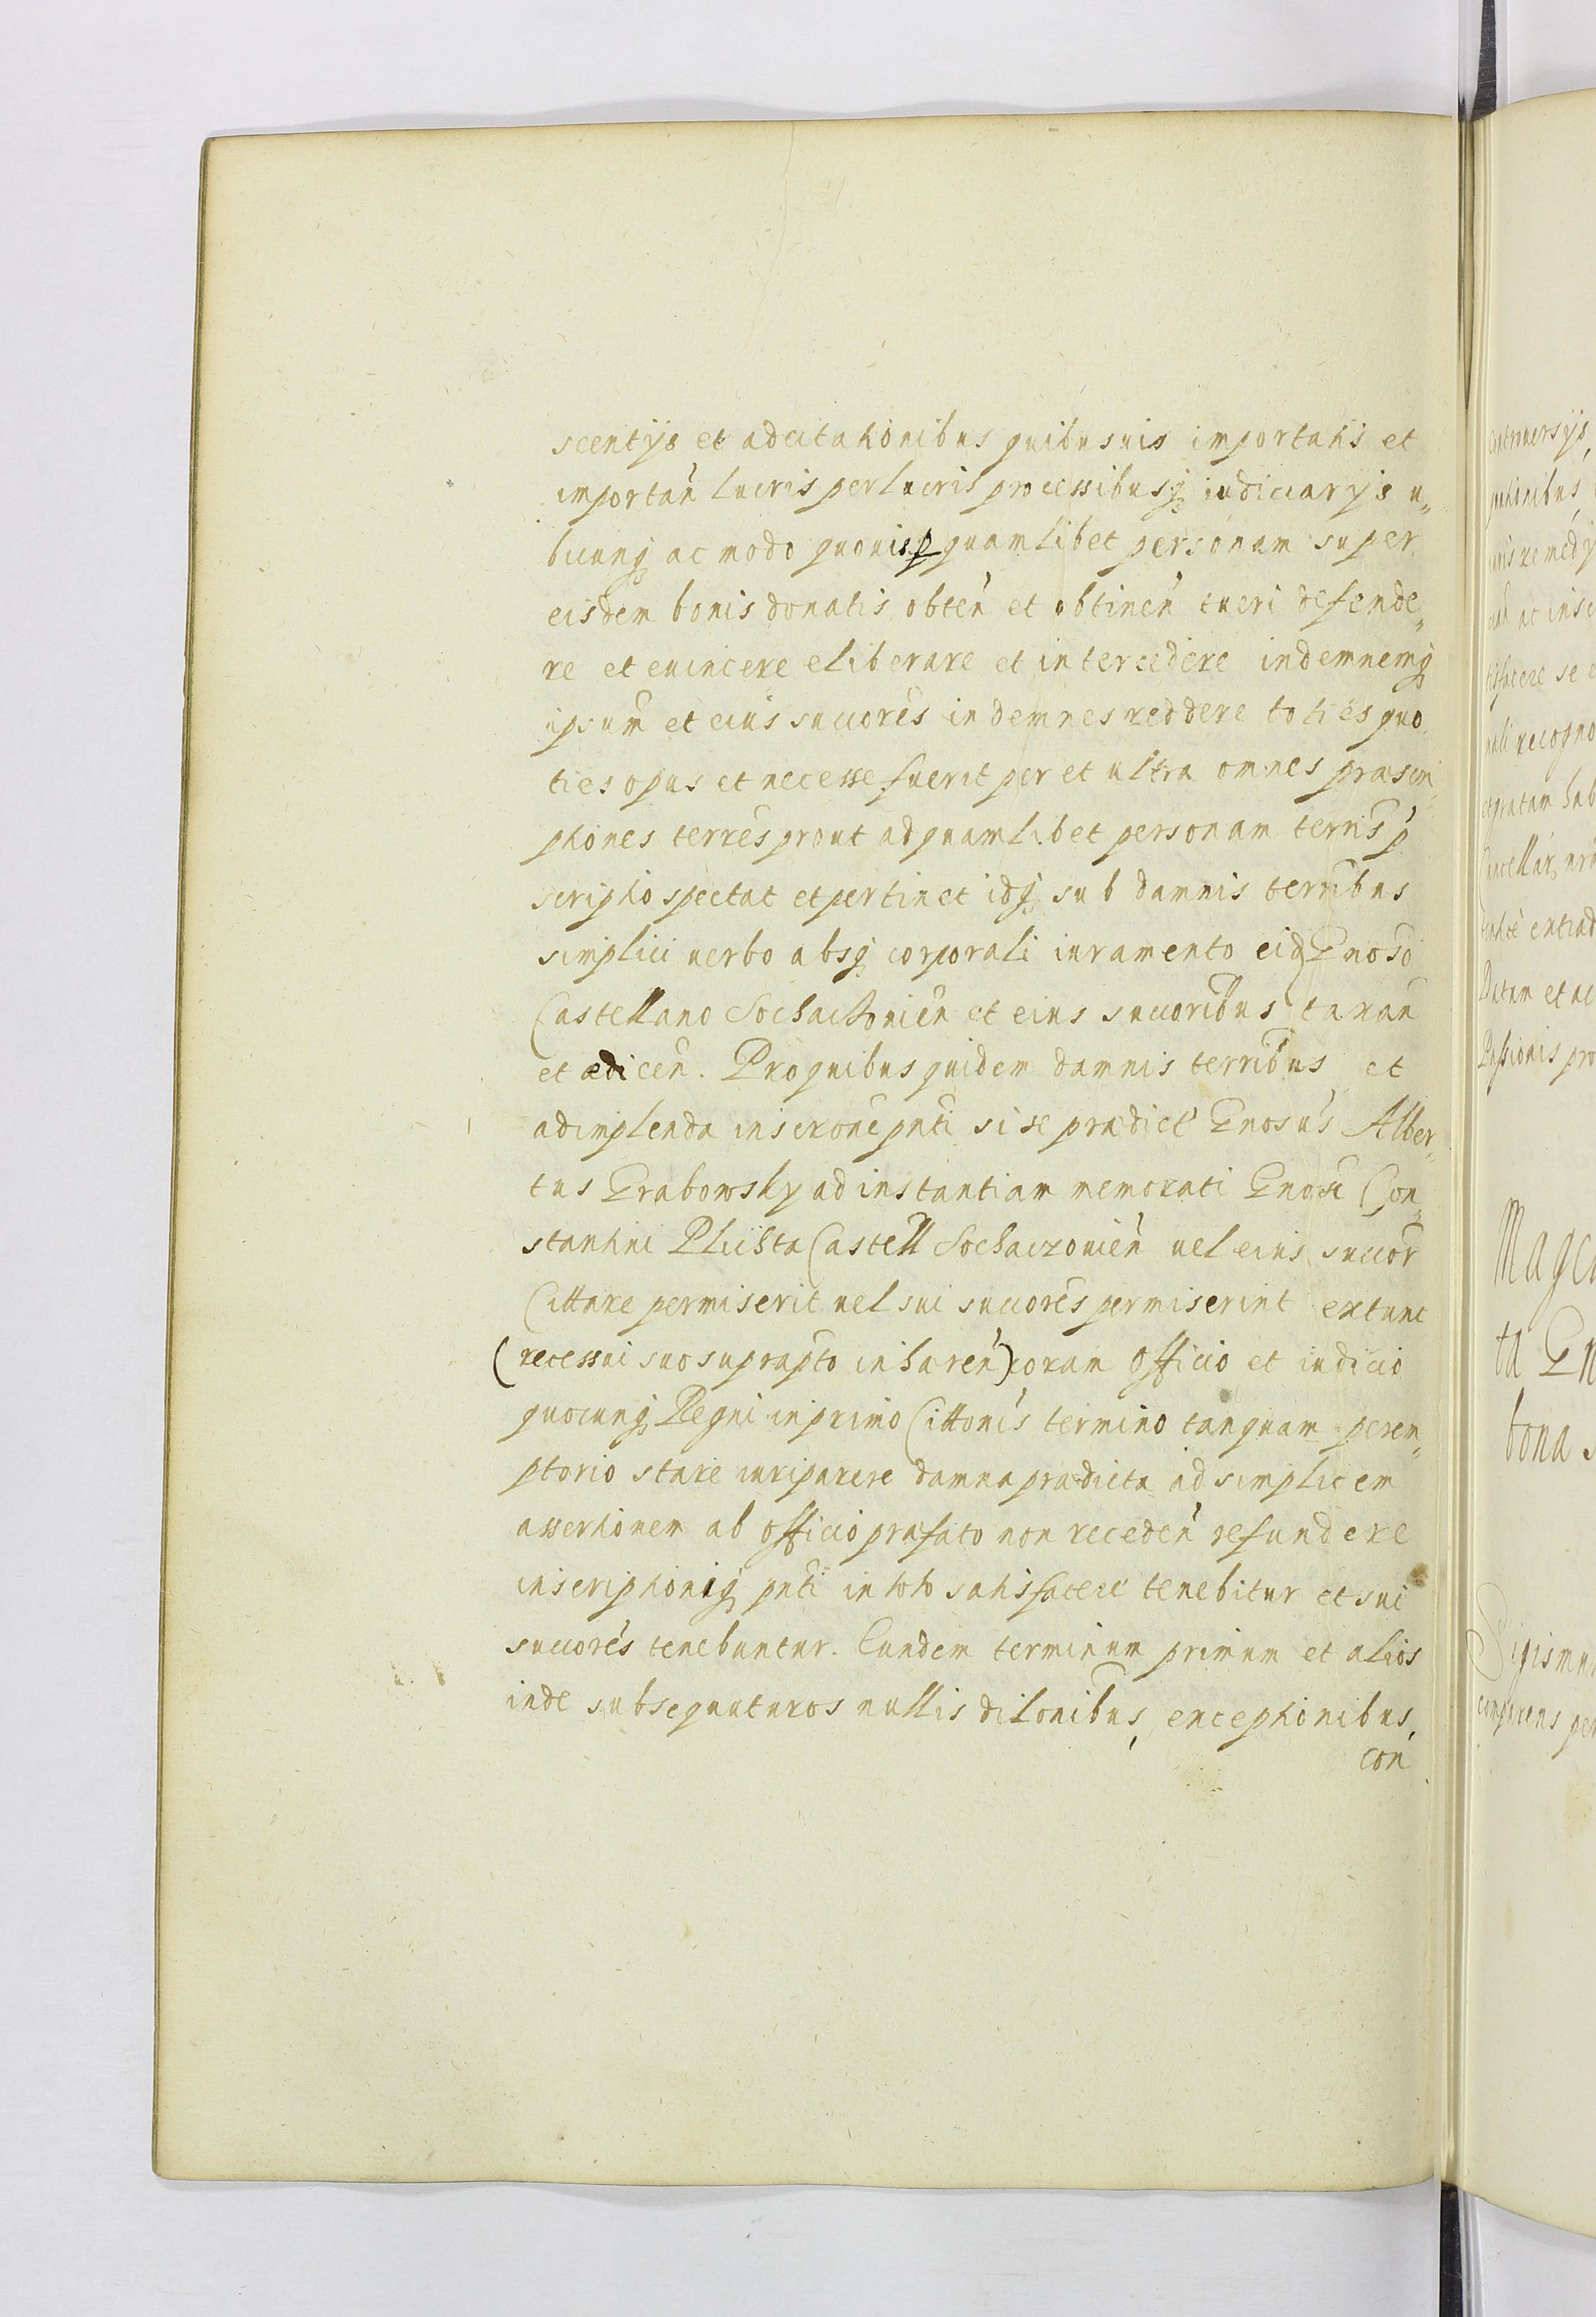 scentijs et adcitationibus quibusuis importatis et
importan̄ lucris perlucris processibusq; iudiciarijs u„
bicunq; ac modo quouis p quamlibet personam super
eisdem bonis donatis obten̄ et obtinen̄ tueri defende„
re et euincere eliberare et intercedere indemnemq;
ipsum et eius succores indemnes reddere toties quo„
ties opus et necesse fuerit per et ultra omnes præscri„
ptiones terres prout ad quamlibet personam terris p̄
scriptio spectat et pertinet idq; sub damnis terribus
simplici uerbo absq; corporali iuramento eid Gnoso
Castellano Sochaczouien̄ et eius succoribus taxan̄
et ædicen̄. Pro quibus quidem damnis terribus et
adimplenda inscrone pnti si se prædict Gnosus Alber„
tus Grabowsky ad instantiam memorati Gnosi Con„
stantini Plichta Castell Sochaczouien̄ uel eius succor
Cittare permiserit uel sui succores permiserint extunc
(recessui suo suprapto inhæren̄) coram Officio et iudicio
quocunq; Regni in primo Cittonis termino tanquam perem„
ptorio stare iuri parere damna prædicta ad simplicem
assertionem ab officio præfato non receden̄ refundere
inscriptioniq; pnti in toto satisfacere tenebitur et sui
succores tenebuntur. Eundem terminum primum et alios
inde subsequuturos nullis dilonibus, exceptionibus,
con